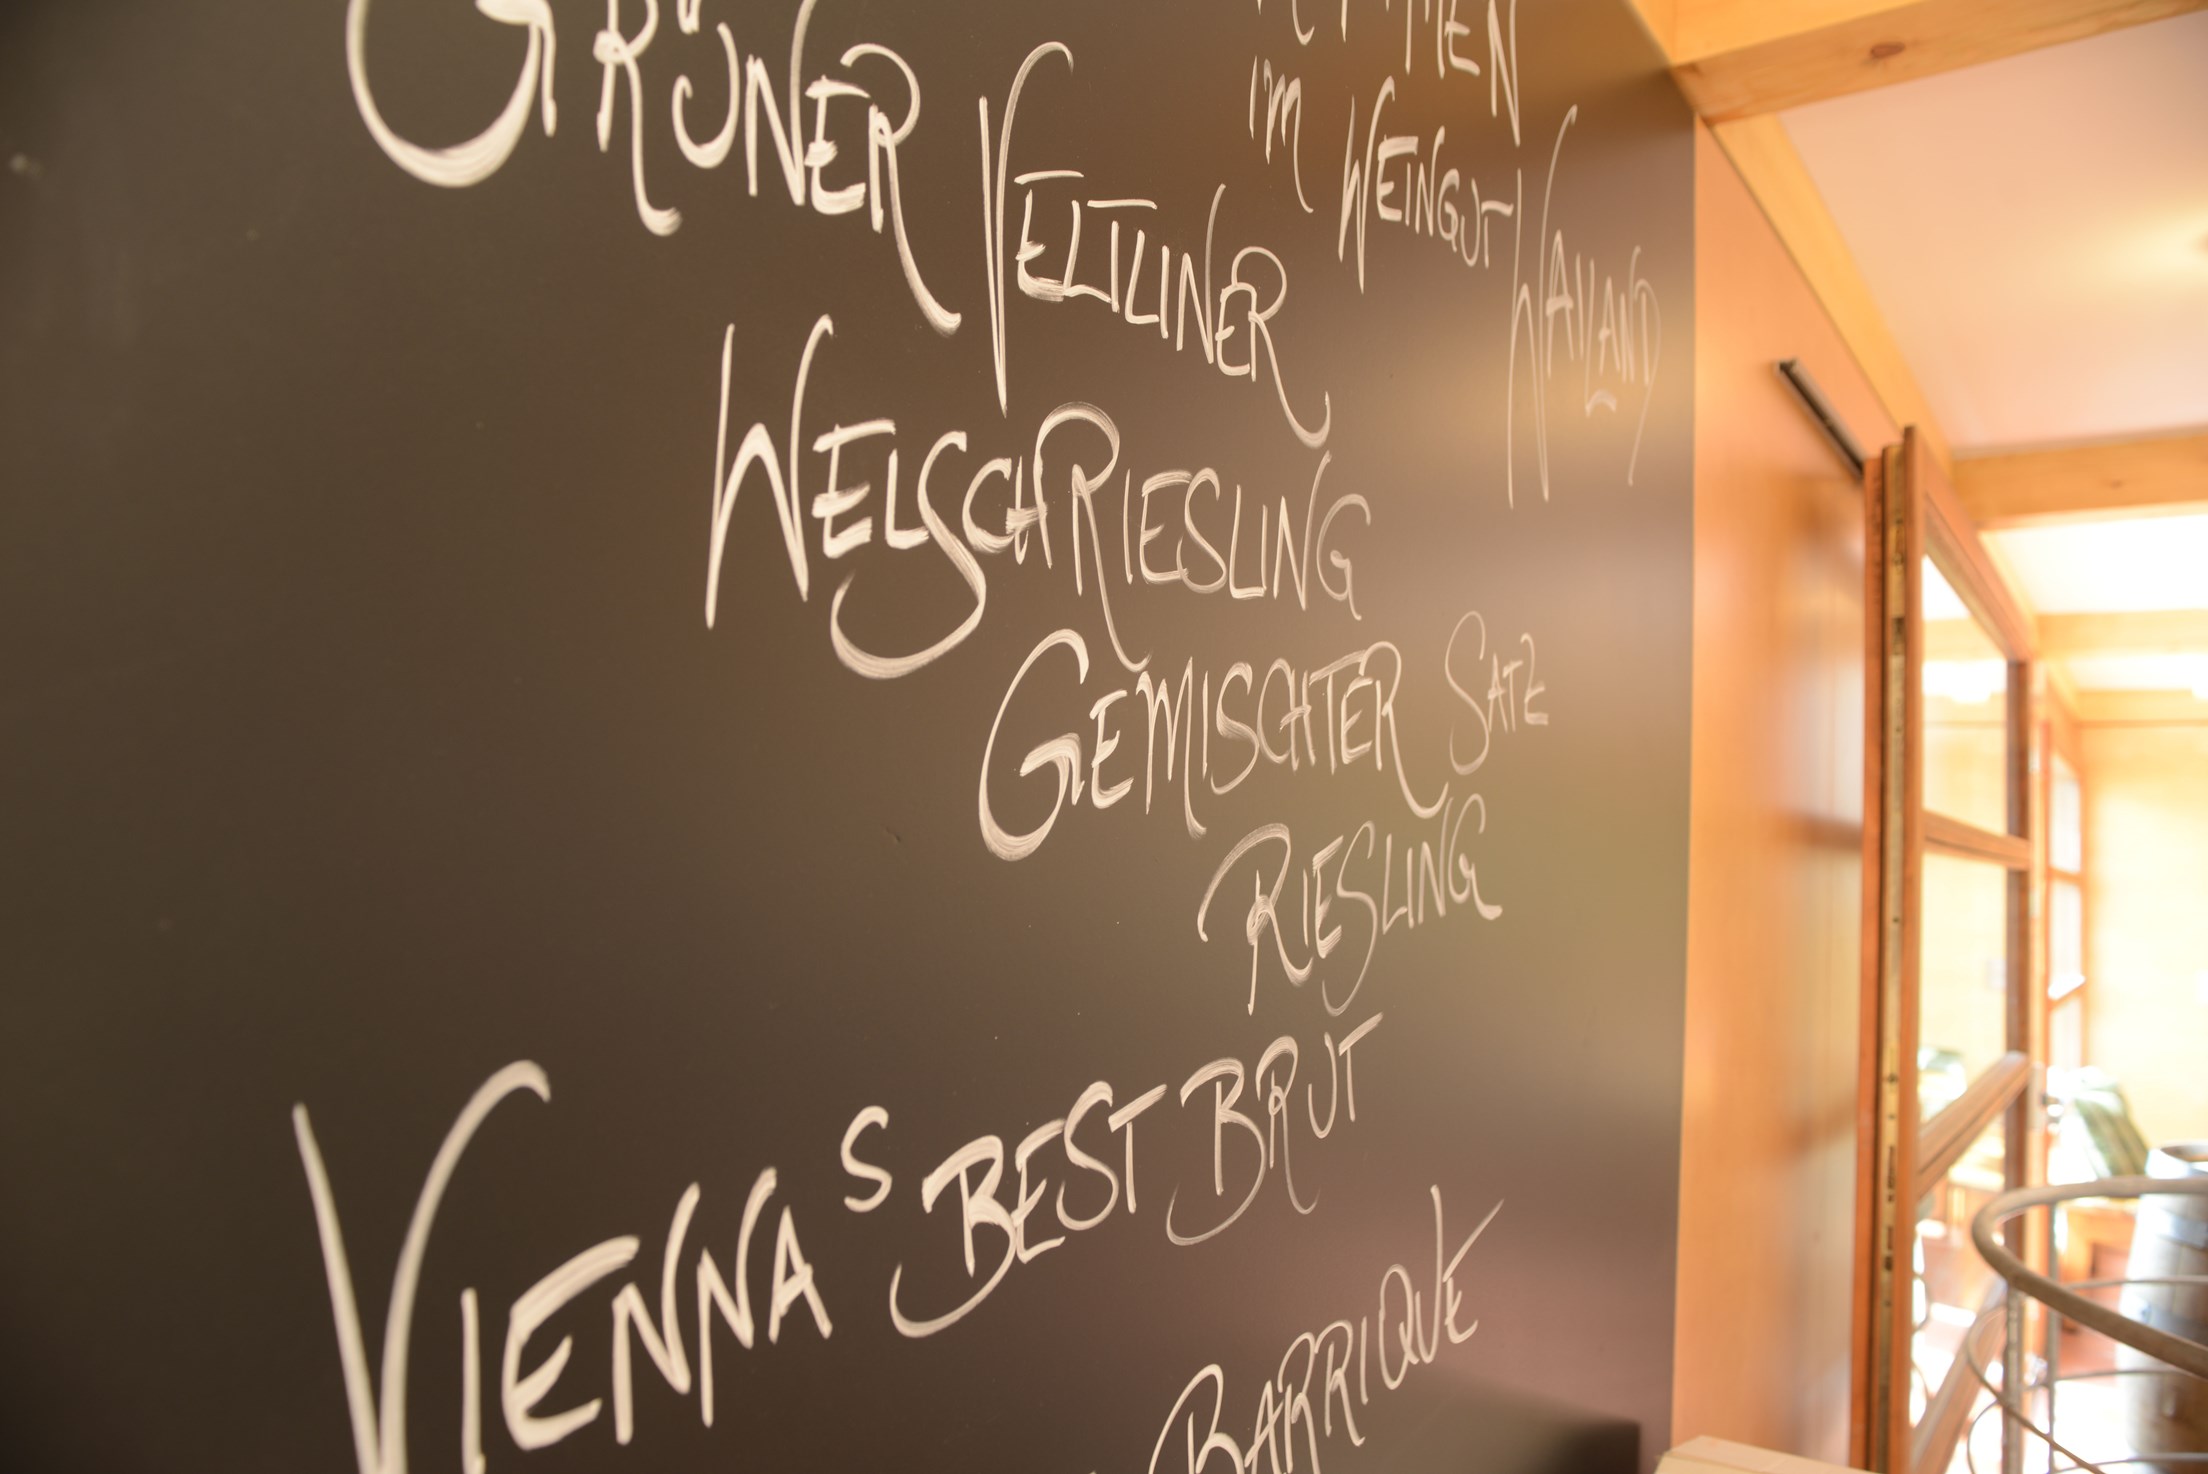 GRÜNER VELTLINER
IM WEINGUT WAILAND
WELSCHRIESLING
GEMISCHTER SATZ
RIESLING
VIENNAS BEST BRUT
BARRIQUE